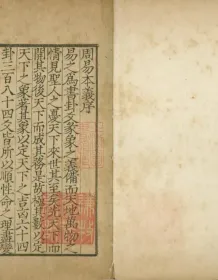 周易本義序
易之為書卦爻彖象之義備而天地萬物之
情見聖人之憂天下來世其至矣先天下而
開其物後天下而成其務是故極其數以定
天下之象著其象以定天下之吉凶六十四
卦三百八十四爻皆所以順性命之理盡變